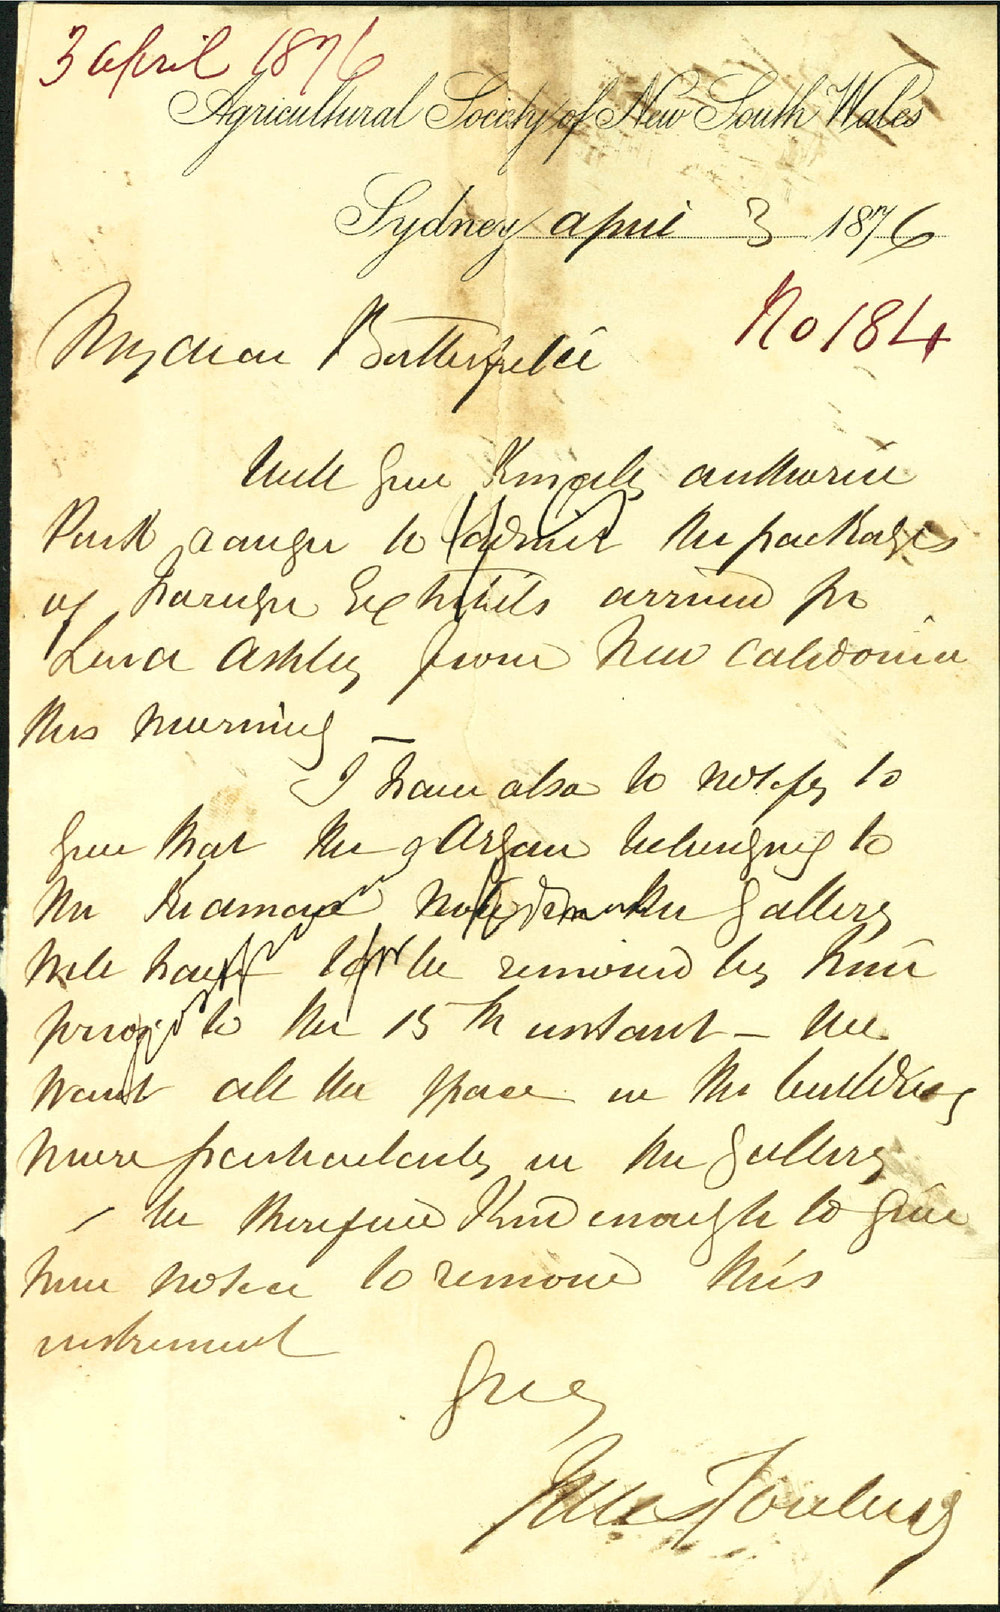 3 April 1876
Agricultural Society of New South Wales
Sydney April 3 1876
No 184
My dear Butterfield
Will you kindly authorise
Park ranger to admit the packages
of Foreign Exhibits arrived pr
Lord Ashley from New Caledonia
this morning —
I have also to notify to
you that the Organ belonging to
Mr now in the Gallery
will have to be removed by him
prior to the 15th instant – We
want all the space in the building
more particularly in the Gallery
– be therefore kind enough to give
him notice to remove this
instrument
Yrs
Jules Joubert